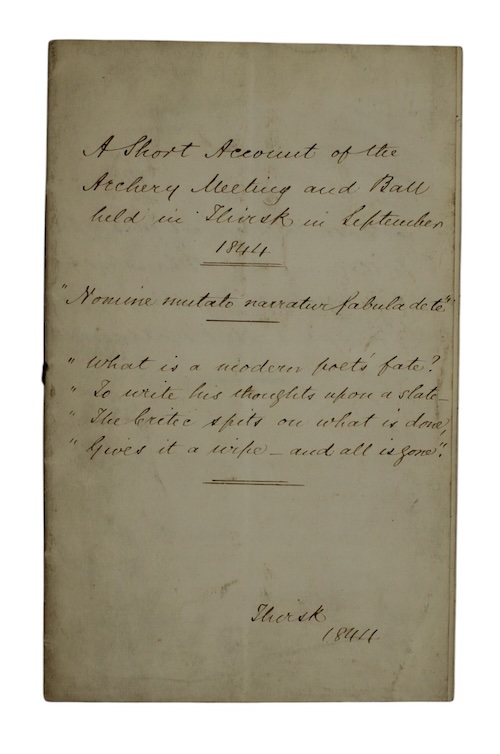 A Short Account of the
Archery Meeting and Ball
held in Thirsk in September
1844
"Nomine mutato narratur fabula de te."
"What is a modern poet's fate?
"To write his thoughts upon a slate—
"The Critic spits on what is done,
"Gives it a wipe — and all is gone."
Thirsk
1844